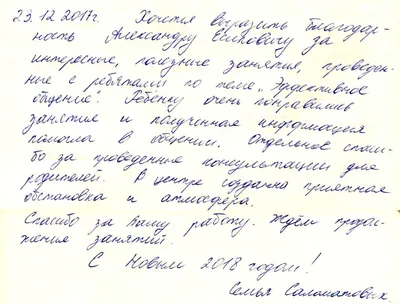 23.12.2017г. Хочется выразить благодар-
ность Александру Евсиковичу за
интересные, полезные занятия, проведен-
ные с ребятами по теме „Эффективное
общение". Ребёнку очень понравились
занятия и полученная информация
помогла в общении. Отдельное спаси-
бо за проведенные консультации для
родителей. В центре создана приятная
обстановка и атмосфера.
Спасибо за Вашу работу. Ждём продол-
жения занятий.
С Новым 2018 годом!
Семья Саломатовых.